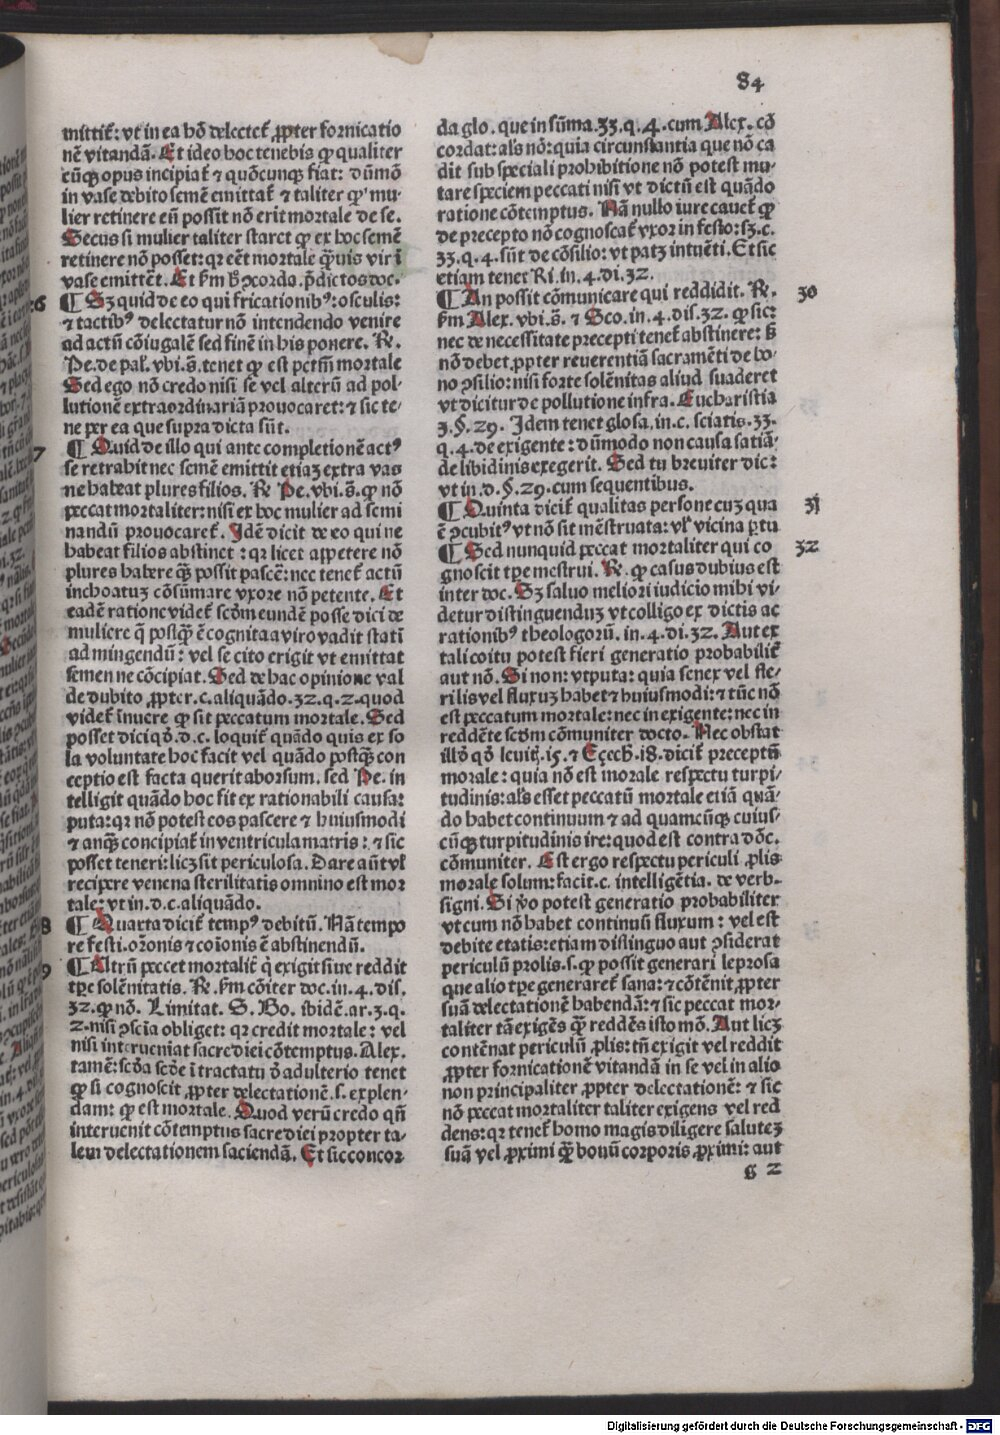 84
mittit̃: vt in ea hõ delectet̃ ꝓpter fornicatio
nẽ vitandã. Et ideo hoc tenebis ꝙ qualiter
cũqꝫ opus incipiat̃ ⁊ quõcunqꝫ fiat: dũmõ
in vase debito semẽ emittat̃ ⁊ taliter ꝙ mu-
lier retinere eũ possit nõ erit mortale de se.
Secus si mulier taliter staret ꝙ ex hoc semẽ
retinere nõ posset: qꝛ eẽt mortale q̃uis vir ĩ
vase emittẽt. Et
¶ Sꝫ quid de eo qui fricationibꝰ: osculis:
⁊ tactibꝰ delectatur nõ intendendo venire
ad actũ cõiugalẽ sed finẽ in his ponere. R̃.
Pe. de pal. vbi. s̃. tenet ꝙ est petm̃ mortale
Sed ego nõ credo nisi se vel alterũ ad pol-
lutionẽ extraordinariã prouocaret: ⁊ sic te-
ne per ea que supra dicta sũt.
¶ Quid de illo qui ante completionẽ actꝰ
se retrahit nec semẽ emittit etiaꝫ extra vas
ne habeat plures filios. R̃ Pe. vbi. s̃. ꝙ nõ
peccat mortaliter: nisi ex hoc mulier ad semi
nandũ prouocaret̃. Idẽ dicit de eo qui ne
habeat filios abstinet: qꝛ licet appetere nõ
plures habere q̃ꝫ possit pascẽ: nec tenet̃ actũ
inchoatuꝫ cõsũmare vxore nõ petente. Et
eadẽ ratione videt̃ scd̃m eundẽ posse dici de
muliere q̃ postq̃ꝫ ẽ cognita a viro vadit statĩ
ad mingendũ: vel se cito erigit vt emittat
semen ne cõcipiat. Sed de hac opinione val
de dubito ꝓpter. c. aliquãdo. 32. q. 2. quod
videt̃ ĩnuere ꝙ sit peccatum mortale. Sed
posset dici qõ. d. c. loquit̃ quãdo quis ex so
la voluntate hoc facit vel quãdo postq̃ꝫ con
ceptio est facta querit aborsum. sed Pe. in
telligit quãdo hoc fit ex rationabili causa:
puta: qꝛ nõ potest eos pascere ⁊ huiusmodi
⁊ anq̃ꝫ concipiat̃ in ventricula matris: ⁊ sic
posset teneri: licꝫ sit periculosa. Dare aũt vl̃
recipere venena sterilitatis omnino est mor
tale: vt in. d. c. aliquãdo.
¶ Quarta dicit̃ tempꝰ debitũ. Nã tempo
re festi. or̃onis ⁊ cõionis ẽ abstinendũ.
¶ Altrũ peccet mortalit̃ q̃ exigit siue reddit
tp̃e solẽnitatis. R̃. fm̃ cõiter doc. in. 4. dis.
32. ꝙ nõ. Limitat. S. Bo. ibidẽ. ar. 3. q.
2. nisi ꝯsciã obliget: qꝛ credit mortale: vel
nisi interueniat sacre diei cõtemptus. Alex.
tamẽ: scd̃a scd̃e ĩ tractatu d̃ adulterio tenet
ꝙ si cognoscit ꝓpter delectationẽ. s. explen-
dam: ꝙ est mortale. Quod verũ credo qñ
interuenit cõtemptus sacre diei propter ta-
lem delectationem faciendã. Et sic concor
da glo. que in sũma. 33. q. 4. cum Alex. cõ
cordat: als̃ nõ: quia circunstantia que nõ ca
dit sub speciali prohibitione nõ potest mu-
tare speciem peccati nisi vt dictũ est quãdo
ratione cõtemptus. Nã nullo iure cauet̃ ꝙ
de precepto nõ cognoscat̃ vxor in festo: sꝫ. c.
33. q. 4. sũt de cõsilio: vt patꝫ intuẽti. Et sic
etiam tenet Ri. in. 4. di. 32.
¶ An possit cõmunicare qui reddidit. R̃. 30
fm̃ Alex. vbi. s̃. ⁊ Sco. in. 4. dis. 32. ꝙ sic:
nec de necessitate precepti tenet̃ abstinere: s̃
nõ debet ꝓpter reuerentiã sacramẽti de bo-
no ꝯsilio: nisi forte solẽnitas aliud suaderet
vt dicitur de pollutione infra. Eucharistia
3. §. 29. Idem tenet glosa. in. c. sciatis. 33.
q. 4. de exigente: dũmodo non causa satiã-
de libidinis exegerit. Sed tu breuiter dic:
vt in. d. §. 29. cum sequentibus.
¶ Quinta dicit̃ qualitas persone cuꝫ qua 31
ẽ ꝯcubitꝰ vt nõ sit mẽstruata: vl̃ vicina ꝑtu
¶ Sed nunquid peccat mortaliter qui co 32
gnoscit tp̃e mẽstrui. R̃. ꝙ casus dubius est
inter doc. Sꝫ saluo meliori iudicio mihi vi-
detur distinguenduꝫ vt colligo ex dictis ac
rationibꝰ theologorũ. in. 4. di. 32. Aut ex
tali coitu potest fieri generatio probabilit̃
aut nõ. Si non: vtputa: quia senex vel ste-
rilis vel fluxuꝫ habet ⁊ huiusmodi: ⁊ tũc nõ
est peccatum mortale: nec in exigente: nec in
reddẽte scd̃m cõmuniter docto. Nec obstat
ill̃d qõ leuit̃. 15. ⁊ Eçech. 18. dicit̃ preceptũ
morale: quia nõ est morale respectu turpi-
tudinis: als̃ esset peccatũ mortale etiã quã-
do habet continuum ⁊ ad quamcũqꝫ cuius-
cũqꝫ turpitudinis ire: quod est contra dõc.
cõmuniter. Est ergo respectu periculi ꝓlis
morale solum: facit. c. intelligẽtia. de verb.
signi. Si ṽo potest generatio probabiliter
vt cum nõ habet continuũ fluxum: vel est
debite etatis: etiam distinguo aut ꝯsiderat
periculũ prolis. s. ꝙ possit generari leprosa
que alio tp̃e generaret̃ sana: ⁊ cõtẽnit ꝓpter
suã delectationẽ habendã: ⁊ sic peccat mor-
taliter tã exigẽs q̃ꝫ reddẽs isto mõ. Aut licꝫ
contẽnat periculũ ꝓlis: tñ exigit vel reddit
ꝓpter fornicationẽ vitandã in se vel in alio
non principaliter ꝓpter delectationẽ: ⁊ sic
nõ peccat mortaliter taliter exigens vel red
dens: qꝛ tenet̃ homo magis diligere saluteꝫ
suã vel ꝓximi q̃ꝫ bonũ corporis ꝓximi: aut
2